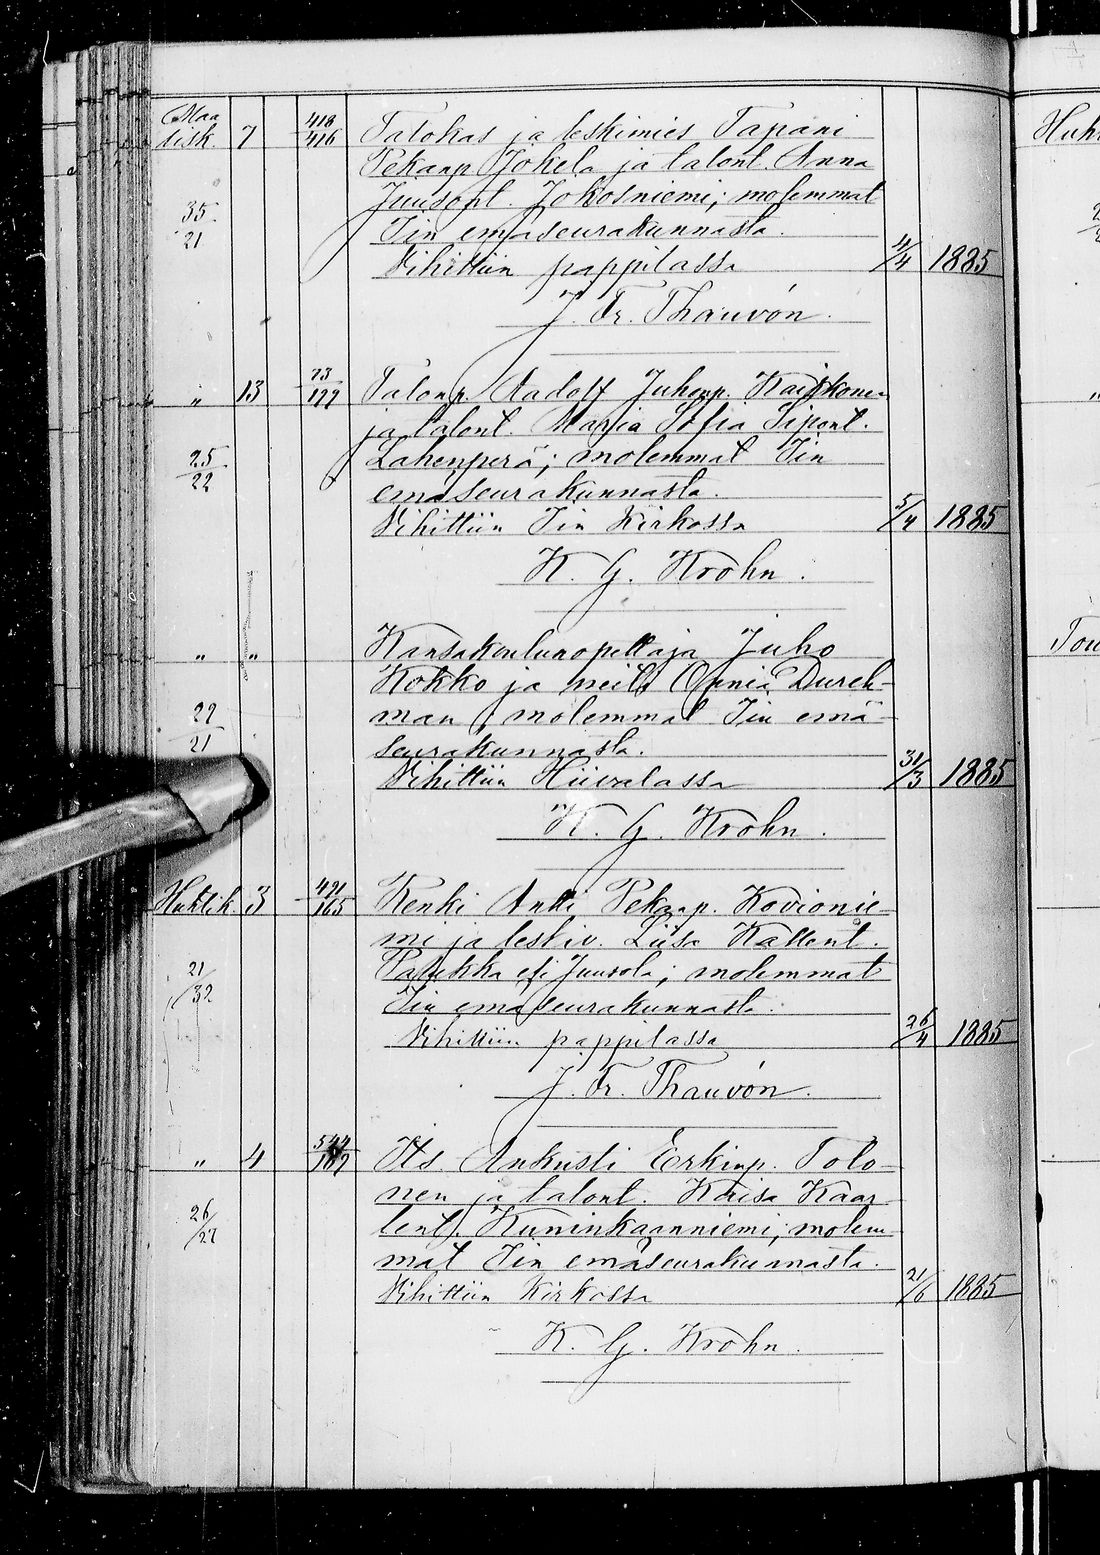 Maa
lisk. 7 418/416 Talokas ja leskimies Tapani
Pekanp. Jokela ja talont. Anna
Juusont. Jokosniemi; molemmat
35/21 Iin emäseurakunnasta.
Vihittiin pappilassa 4/4 1885
J. Fr. Thauvón.
" 13 73/199 Talonp. Aadolf Juhonp. Kaikkonen
ja talont. Maria Sofia Sipont.
25/22 Lahenperä; molemmat Iin
emäseurakunnasta.
Vihittiin Iin Kirkossa 5/4 1885
K. G. Krohn.
" " Kansakoulunopettaja Juho
Kokko ja neito Dureh-
29/21 man, molemmat Iin emä-
seurakunnasta.
Vihittiin 31/3 1885
K. G. Krohn.
Huhtik. 3 491/165 Renki Antti Pekanp. Kovionie-
mi ja leskiv. Liisa Kallent.
21/32 eli Juusola; molemmat
Iin emäseurakunnasta.
Vihittiin pappilassa 26/4 1885
J. Fr. Thauvón.
" 4 Its. Aukusti Erkinp. Tolo-
nen ja talont. Kaisa Kaar-
26/27 lent. Kuninkaanniemi; molem-
mat Iin emäseurakunnasta.
Vihittiin Kirkossa 21/6 1885
K. G. Krohn.